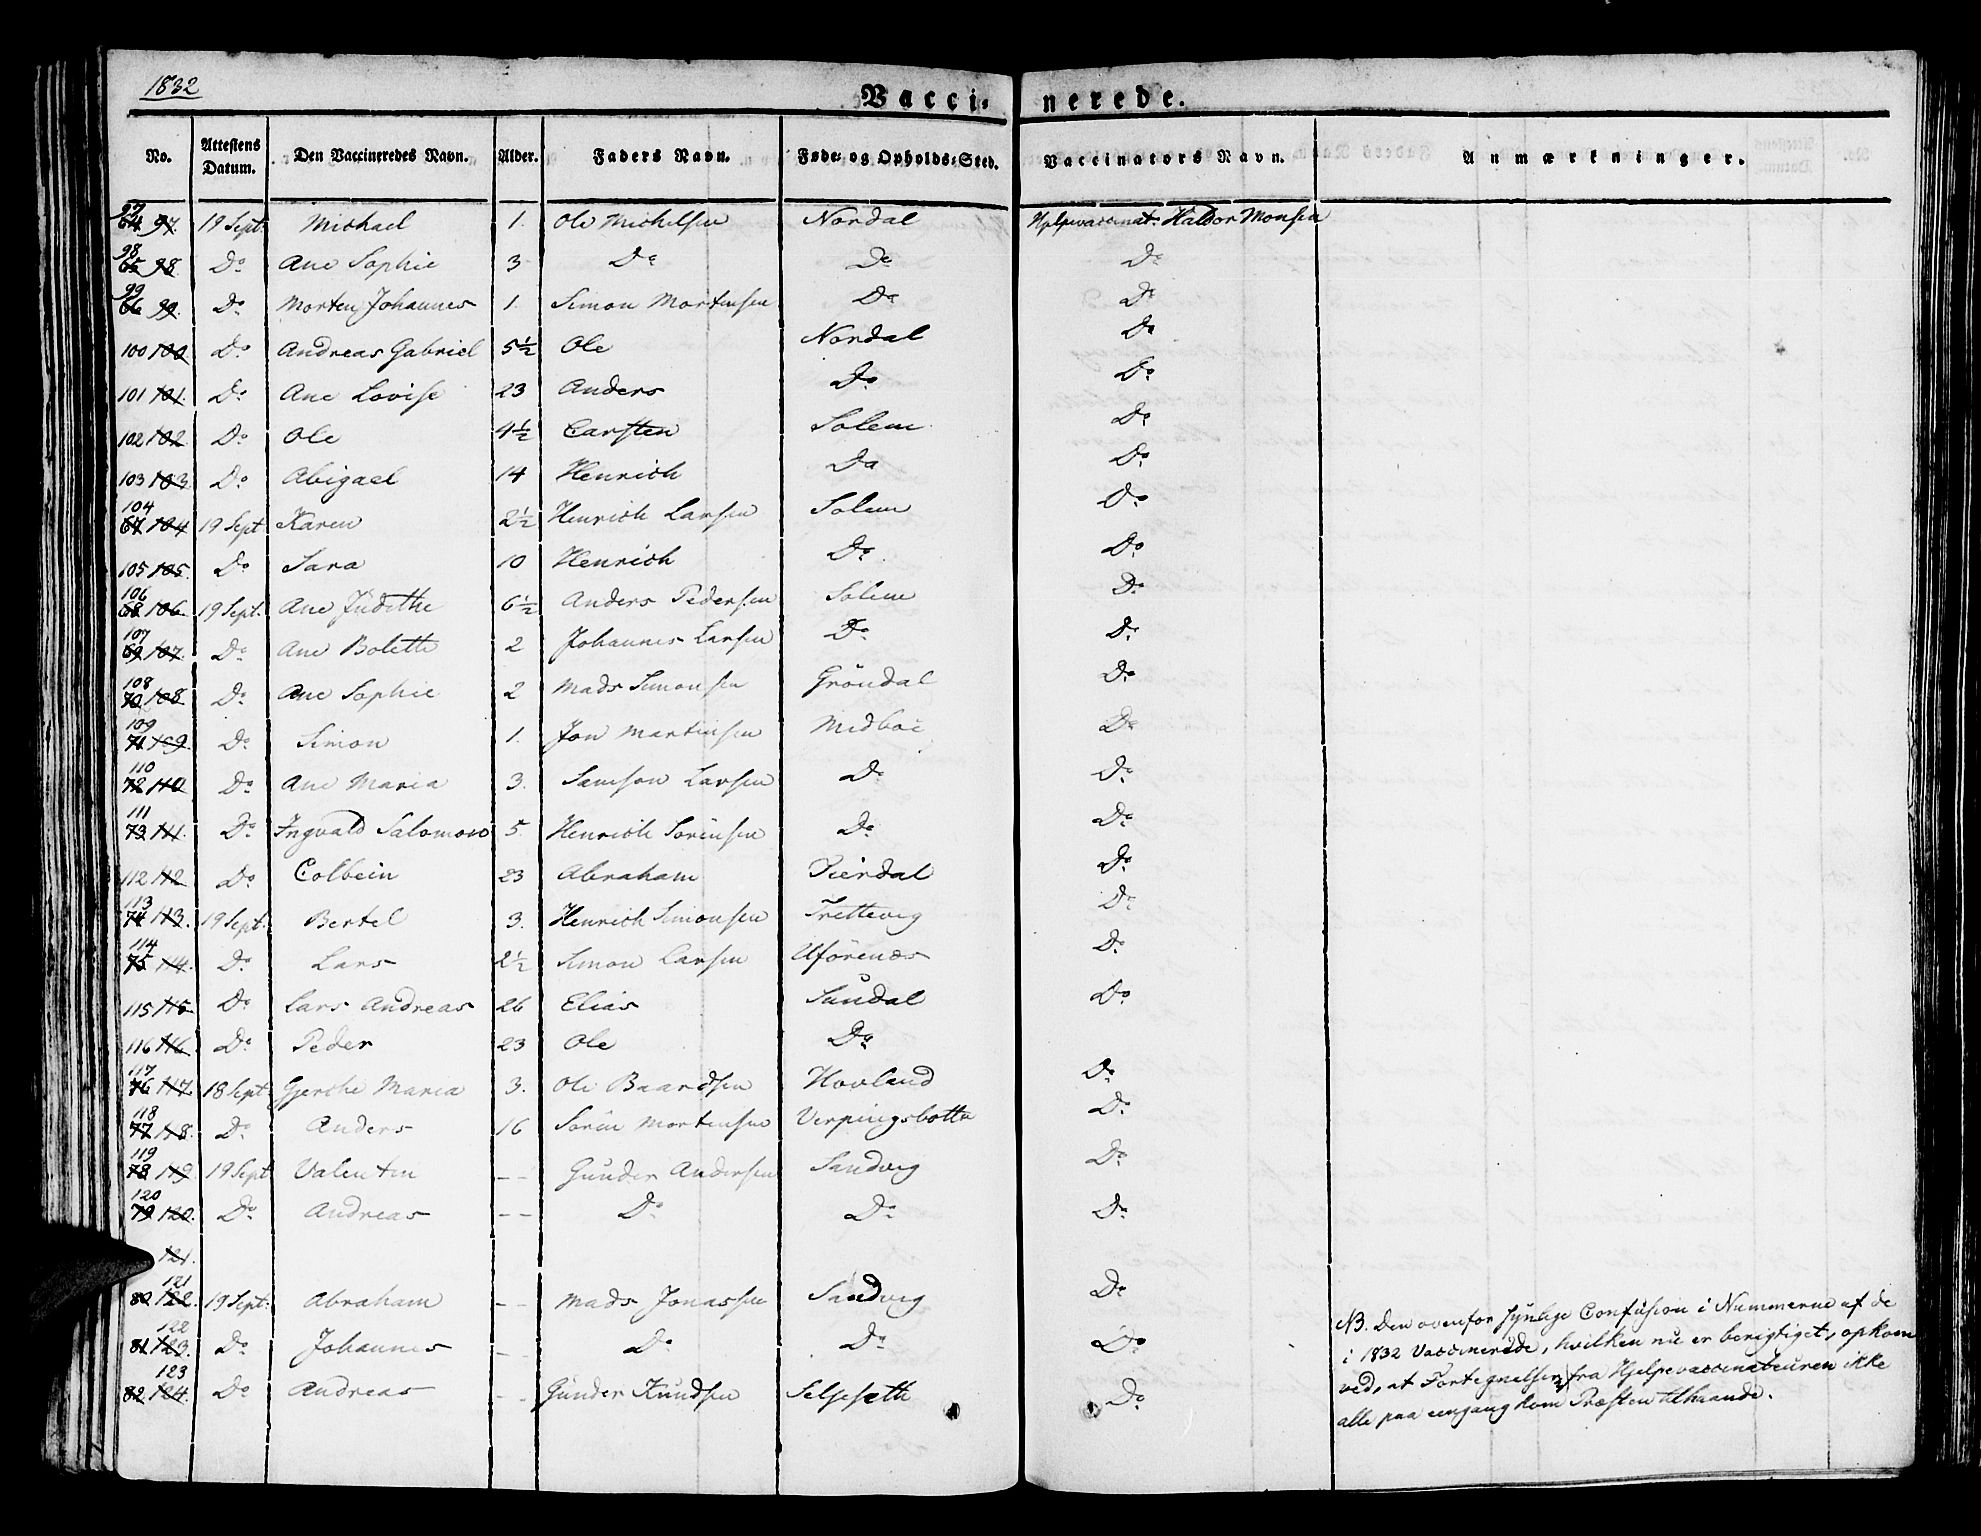 1832
Vacci- nerede.
No. Attestens Datum. Den Vaccineredes Navn. Alder. Faders Navn. Føde- og Opholds-Sted. Vaccinators Navn. Anmærkninger.
97 64 97. 19 Sept. Michael 1. Ole Michelsen Nordal Hjelpevaccinat. Haldor Monsen
98 65 98 Do Ane Sophie 3 Do Do Do
99 66 99. Do Morten Johannes 1. Simon Mortensen Do Do
100 100 Do Andreas Gabriel 5½ Ole Nordal Do
101 101. Do Ane Lovise 23 Anders Do Do
102 102 Do Ole 4½ Carsten Solem Do
103 103 Do Abigael 14 Henrich Do Do
104 67 104 19 Sept Karen 2½ Henrich Larsen Solem Do
105 105. Do Sara 10 Henrich Do Do
106 68 106. 19 Sept. Ane Judithe 6½ Anders Pedersen Solem Do
107 69 107. Do Ane Bolette 2 Johannes Larsen Do Do
108 70 108 Do Ane Sophie 2 Mads Simonsen Gröndal Do
109 71 109 Do Simon 1. Jon Martinsen Midböe Do
110 72 110 Do Ane Maria 3. Samson Larsen Do Do
111 73 111. Do Ingvald Salomon 5. Henrich Sörensen Do Do
112 112 Do Colbein 23 Abraham Do
113 74 113. 19 Sept. Bertel 3. Henrich Simonsen Trettevig Do
114 75 114. Do Lars 2½ Simon Larsen Uförenæs Do
115 115 Do Lars Andreas 26 Elias Sundal Do
116 116. Do Peder 23 Ole Do
117 76 117. 18 Sept. Gjerthe Maria 3. Ole Baardsen Hovland Do
118 77 118. Do Anders 16 Sören Mortensen Verpingsbotten Do
119 78 119 19 Sept Valentin -- Gunder Andersen Sandvig Do
120 79 120. Do Andreas -- Do Do Do
121.
121 80 122. 19 Sept. Abraham -- Mads Jonassen Sandvig Do
122 81 123. Do Johannes -- Do Do Do
123 82 124. Do Andreas -- Gunder Knudsen Selseseth Do
NB. Den ovenfor synlige Confusion i Nummerne af de
i 1832 Vaccinerede, hvilken nu er berigtiget, opkom
ved, at Fortegnelser fra Hjelpevaccinateuren ikke
alle paa eengang kom Præsten tilhaande.